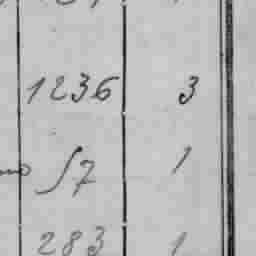 1236 3
57 1
283 1